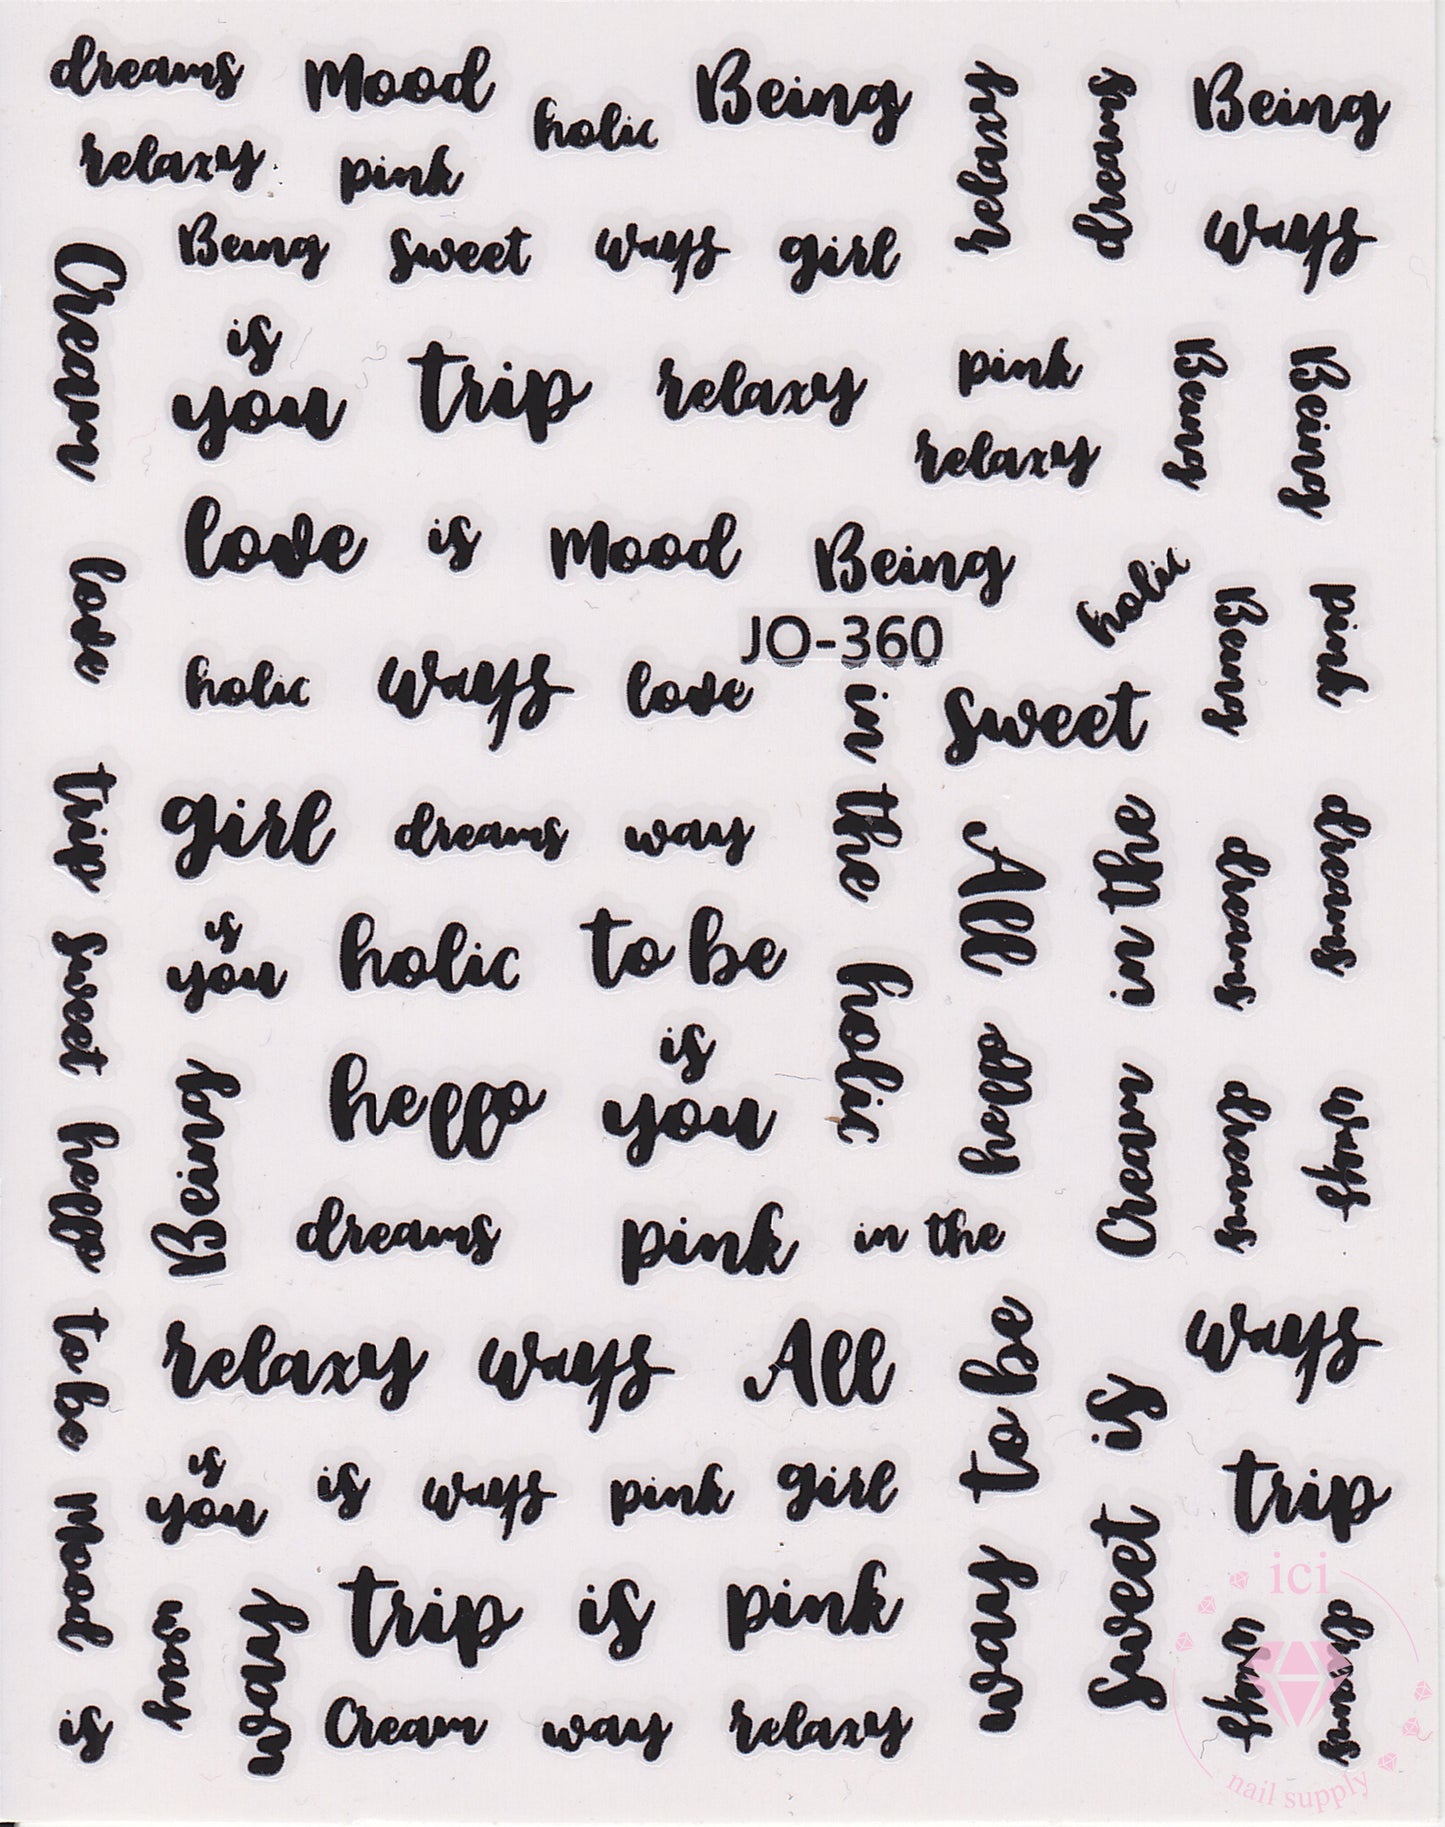 dreams Mood holic Being relaxy dreams Being
relaxy pink
Cream Being Sweet ways girl ways
is
you trip relaxy pink Being Being
relaxy
love love is Mood Being holic Being pink
JO-360
holic ways love in the Sweet
trip girl dreams way All in the dreams dreams
Sweet is
you holic to be holic
hello Being hello is
you hello Cream dreams ways
dreams pink in the
to be relaxy ways All to be is ways
Mood is
you is ways pink girl Sweet trip
way way trip is pink way ways dreams
is Cream way relaxy
ici
nail supply